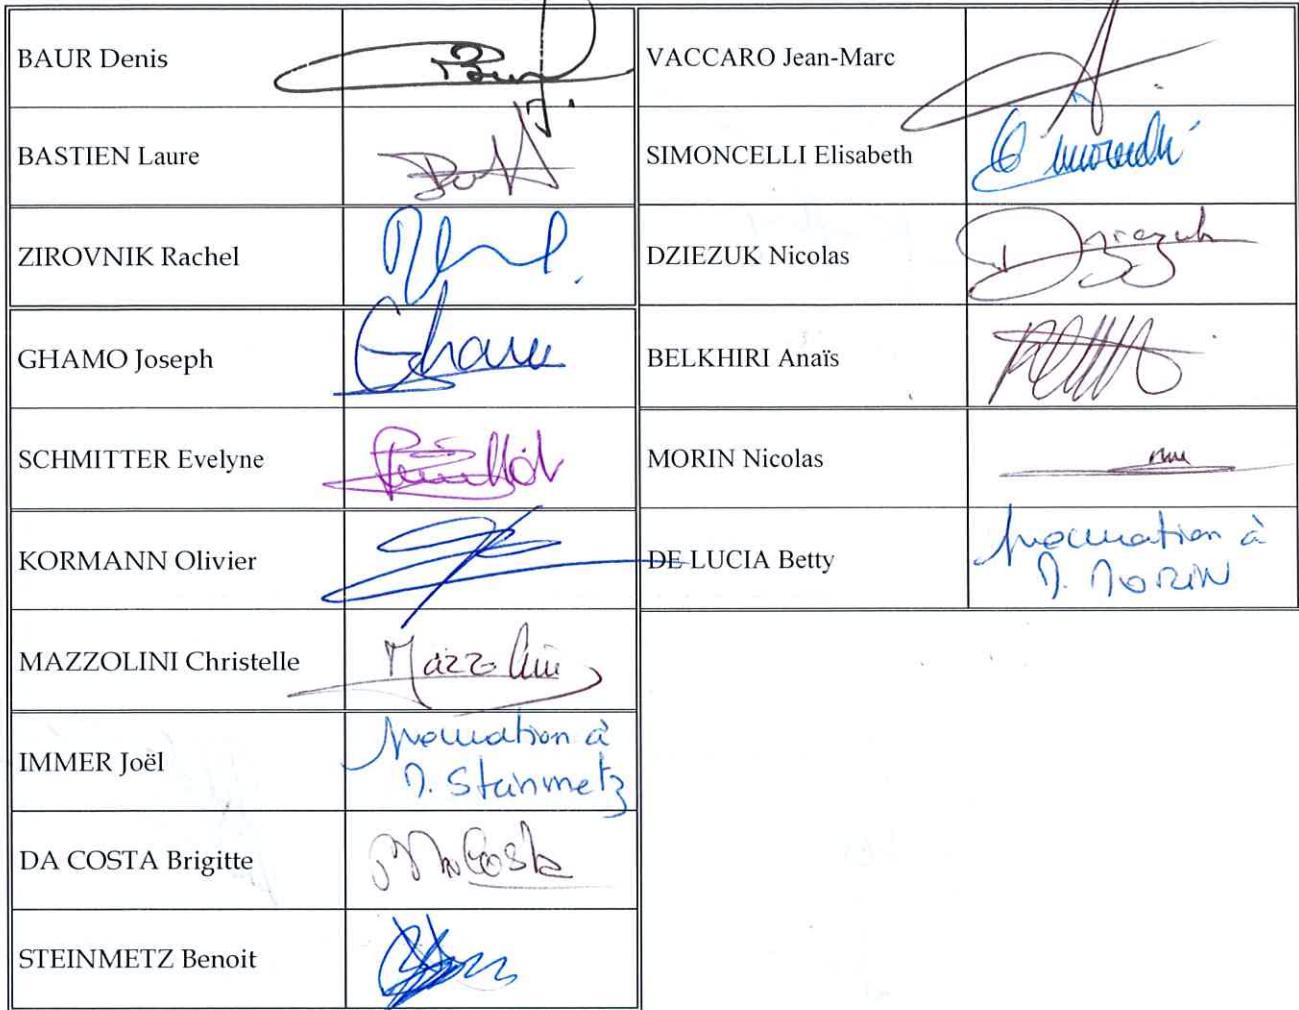 BAUR Denis
BASTIEN Laure
ZIROVNIK Rachel
GHAMO Joseph
Ghamo
SCHMITTER Evelyne
KORMANN Olivier
MAZZOLINI Christelle
Mazzolini
IMMER Joël
procuration à
M. Steinmetz
DA COSTA Brigitte
Da Costa
STEINMETZ Benoit
VACCARO Jean-Marc
SIMONCELLI Elisabeth
DZIEZUK Nicolas
Dziezuk
BELKHIRI Anaïs
MORIN Nicolas
DE LUCIA Betty
procuration à
M. MORIN